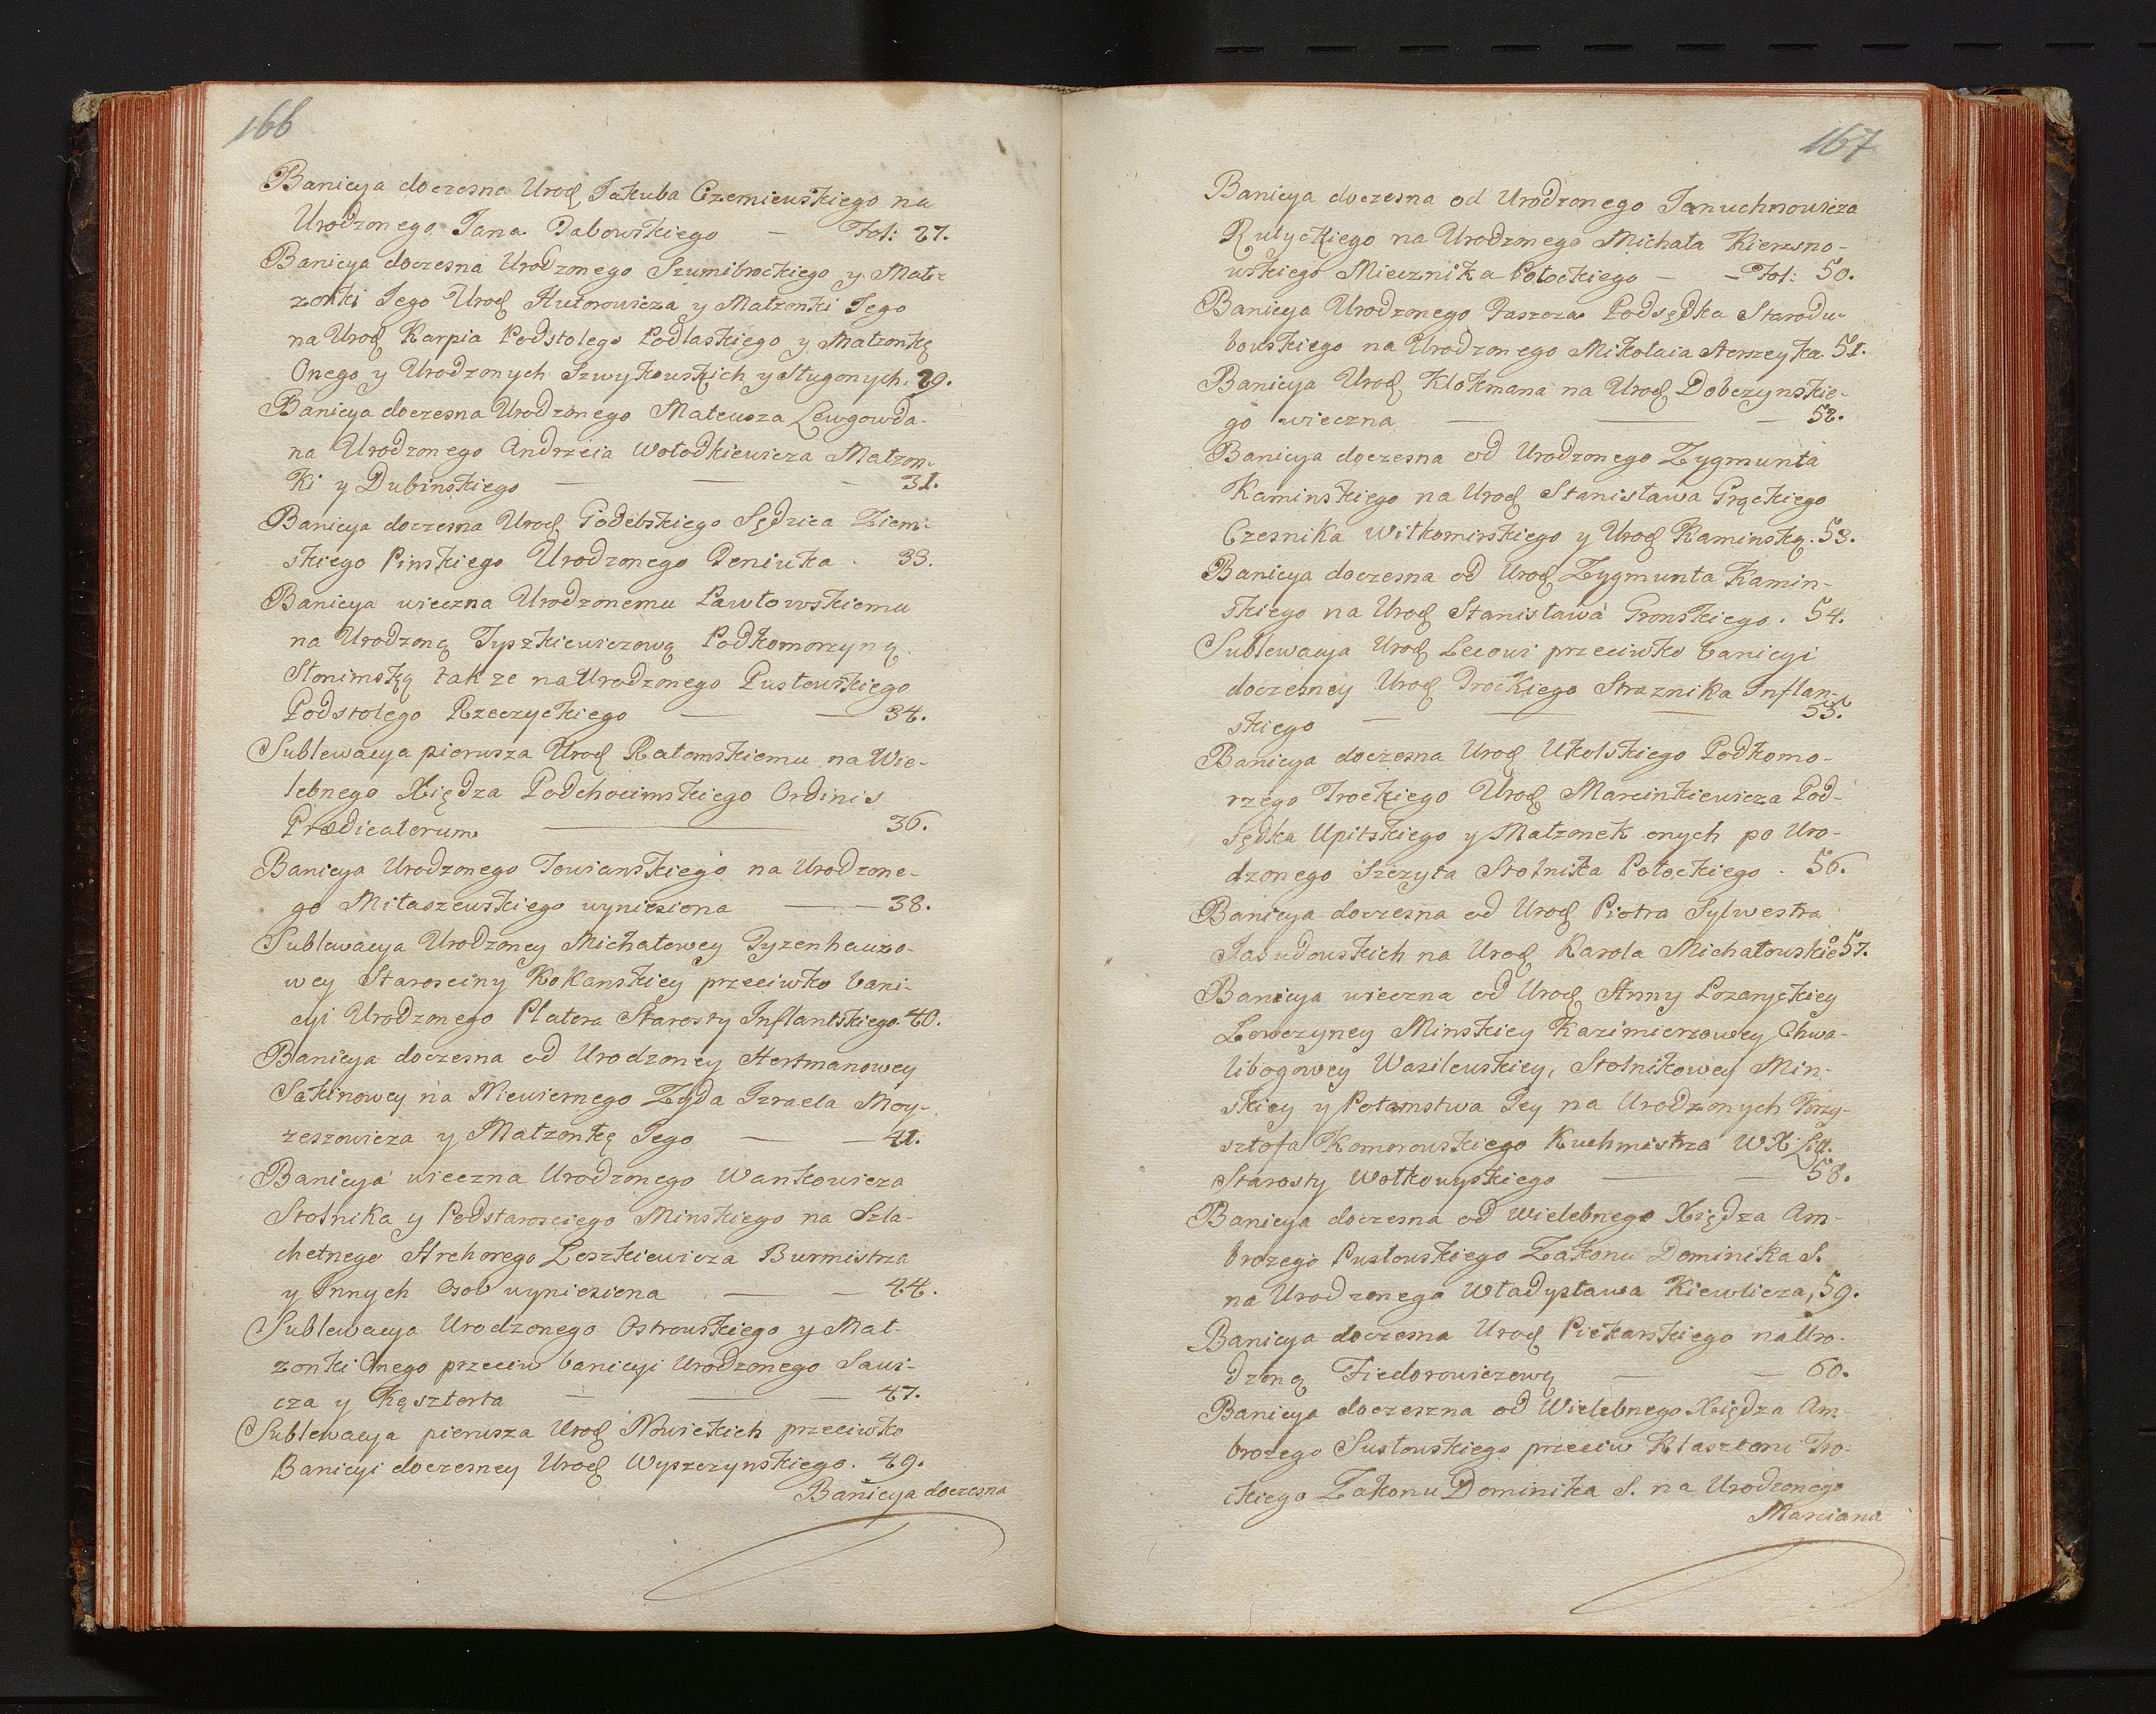 166
Banicya doczesna Urod Jakuba Czerniewskiego na
Urodzonego Jana Dabowskiego — Fol: 27.
Banicya doczesna Urodzonego Szumibrockiego y Mał-
zonki Jego Urod Hutorowicza y Małzonki Jego
na Urod Karpia Podstolego Podlaskiego y Małzonkę
Onego y Urodzonych Szwykowskich y Sługonych. 29.
Banicya doczesna Urodzonego Mateusza Lewgowda
na Urodzonego Andrzeia Wołodkiewicza Małzon-
ki y Dubinskiego — — — 31.
Banicya doczesna Urod Godebskiego Sędzica Ziem-
skiego Pinskiego Urodzonego Deniuka . 33.
Banicya wieczna Urodzonemu Pawłowskiemu
na Urodzoną Tyszkiewiczową Podkomorzyną
Słonimską tak ze na Urodzonego Pusłowskiego
Podstolego Rzeczyckiego — — 34.
Sublewacya pierwsza Urod Ratomskiemu na Wie-
lebnego Xiędza Podchocimskiego Ordinis
Prædicatorum — 36.
Banicya Urodzonego Towianskiego na Urodzone-
go Miłaszewskiego wyniesiona — 38.
Sublewacya Urodzoney Michałowey Tyzenhauzo-
wey Starosciny Kokanskiey przeciwko bani-
cyi Urodzonego Platera Starosty Inflantskiego. 40.
Banicya doczesna od Urodzoney Hertmanowey
Sakinowey na Niewiernego Zyda Izraela Moy-
zeszowicza y Małzonkę Jego — — 41.
Banicya wieczna Urodzonego Wankowicza
Stolnika y Podstarosciego Minskiego na Szla-
chetnego Hrehorego Leszkiewicza Burmistrza
y Innych Osob wyniesiona — — 44.
Sublewacya Urodzonego Ostrowskiego y Mał-
zonki Onego przeciw banicyi Urodzonego Sawi-
cza y Kęsztorta — — — 47.
Sublewacya pierwsza Urod Nowickich przeciwko
Banicyi doczesney Urod Wyszczynskiego. 49.
Banicya doczesna
167
Banicya doczesna od Urodzonego Januchnowicza
Rutyckiego na Urodzonego Michała Kierzno-
wskiego Miecznika Połockiego — — Fol: 50.
Banicya Urodzonego Paszcza Podsędka Starodu-
bowskiego na Urodzonego Mikołaia Aerszeyka 51.
Banicya Urod Klokmana na Urod Dobczynskie-
go wieczna — — — 52.
Banicya doczesna od Urodzonego Zygmunta
Kaminskiego na Urod Stanisława Grąckiego
Czesnika Wiłkomirskiego y Urod Kaminską. 53.
Banicya doczesna od Urod Zygmunta Kamin-
skiego na Urod Stanisława Gronskiego. 54.
Sublewacya Urod Lecowi przeciwko banicyi
doczesney Urod Grockiego Straznika Inflan-
skiego — — — 55.
Banicya doczesna Urod Ukolskiego Podkomo-
rzego Trockiego Urod Marcinkiewicza Pod-
sędka Upitskiego y Małzonek onych po Uro-
dzonego Szczyta Stolnika Połockiego . 56.
Banicya doczesna od Urod Piotra Sylwestra
Jasudowskich na Urod Karola Michałowskie 57.
Banicya wieczna od Urod Anny Lozaryckiey
Łowczyney Minskiey Kazimierzowey Chwa-
libogowey Wasilewskiey, Stolnikowey Min-
skiey y Potomstwa Jey na Urodzonych Krzy-
sztofa Komorowskiego Kuchmistrza W X Litt.
Starosty Wołkowyskiego — — 58.
Banicya doczesna od Wielebnego Xiędza Am-
brozego Pusłowskiego Zakonu Dominika S.
na Urodzonego Władysława Kiewlicza, 59.
Banicya doczesna Urod Piekarskiego na Uro-
dzoną Fiedorowiczową — — 60.
Banicya doczeszna od Wielebnego Xiędza Am-
brozego Susłowskiego przeciw Klasztoru Tro-
ckiego Zakonu Dominika S. na Urodzonego
Marciana